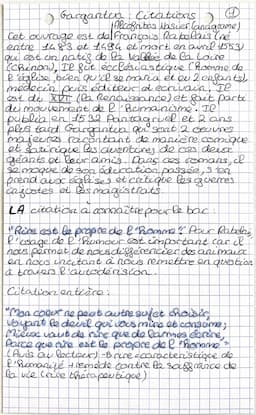 Gargantua : Citations ①
(Alcofribas Nasier (anagramme)
Cet ouvrage est de François Rabelais (né
entre 1483 et 1494 et mort en avril 1553)
qui est natif de la Vallée de la Loire
(Chinon). Il fût ecclésiastique (homme de
l'église, bien qu'il se maria et eu 2 enfants),
médecin puis éditeur et écrivain. Il
est du XVI (la Renaissance) et fait partie
du mouvement de l'Humanisme. Il
publia en 1532 Pantagruel et 2 ans
plus tard Gargantua qui sont 2 oeuvres
majeures racontant de manière comique
et satirique les aventures de ces deux
géants et leur amis. Dans ces romans, il
se moque de son éducation passée, s'en
prend aux églises et critique les guerres
injustes et les magistrats
LA citation à connaître pour le bac
"Rire est le propre de l'homme". Pour Rabelais,
l'usage de l'humour est important car il
nous permet de nous différencier des animaux
en nous incitant à nous remettre en question
à travers l'autodérision.
Citation entière :
"Mon coeur ne peut autre sujet choisir,
Voyant le deuil qui vous mine et consume;
Mieux vaut de rire que de larmes écrire,
Parce que rire est le propre de l'homme"
(Avis au lecteur) → rire = caractéristique de
l'humanité + remède contre la souffrance de
la vie (rire thérapeutique)